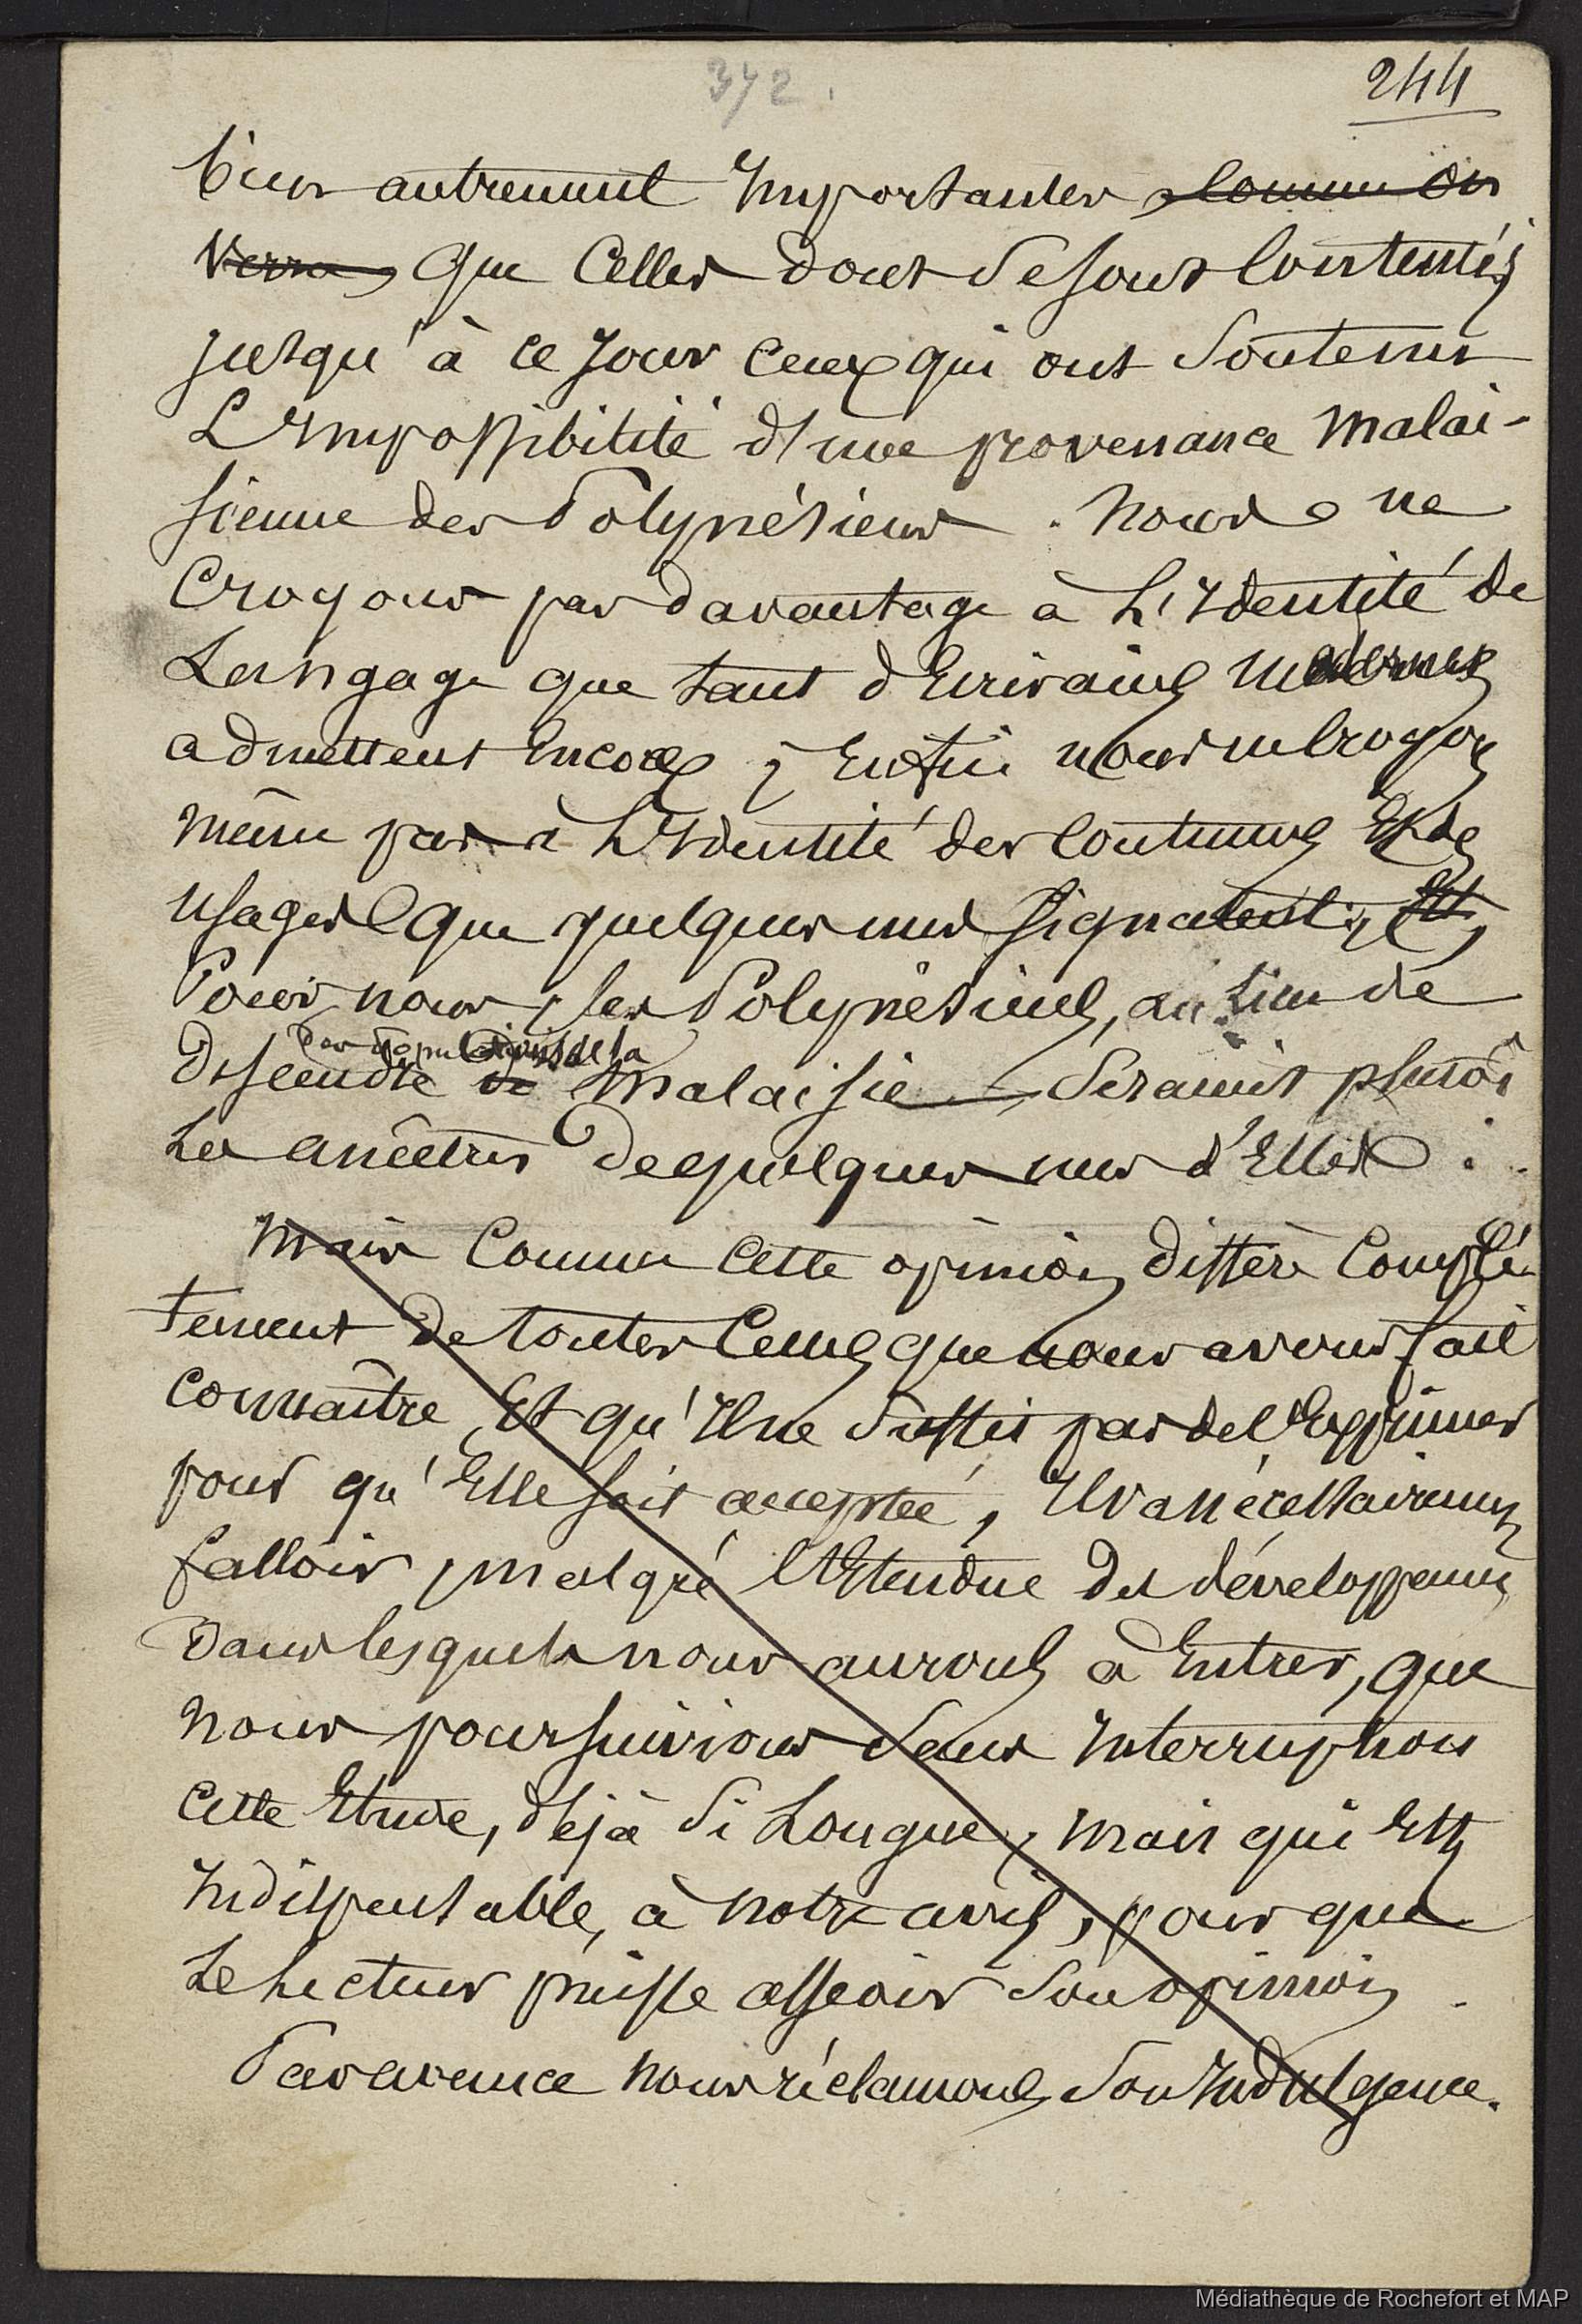 342.
244
bien autrement Importantes, comme on
verra, que celles dont se sont contentés
jusqu'à ce jour ceux qui ont soutenus
L'Impossibilité d'une provenance malai-
sienne des Polynésiens. Nous ne
Croyons pas davantage à L'Identité de
Langage que tant d'Ecrivains modernes
admettent Encore; Enfin nous ne croyons
même pas à L'Identité des Coutumes Et des
usages que quelques uns signalent; Et,
Pour nous, les Polynésiens, au lieu de
des populations de la
descendre de Malaisie, seraient plutôt
Les ancêtres de quelques unes d'Elles.
Mais Comme cette opinion diffère Complè-
tement de toutes Celles que nous avons fait
connaître, Et qu'Il ne suffit pas de l'Exprimer
pour qu'Elle soit acceptée, Il va nécessairement
falloir, malgré l'Etendue des développements
dans lesquels nous aurons à Entrer, que
nous poursuivions sans Interruption
cette Etude, déjà si Longue, mais qui Est
Indispensable, à notre avis, pour que
Le Lecteur puisse asseoir son opinion.
Par avance nous réclamons son Indulgence.
Médiathèque de Rochefort et MAP